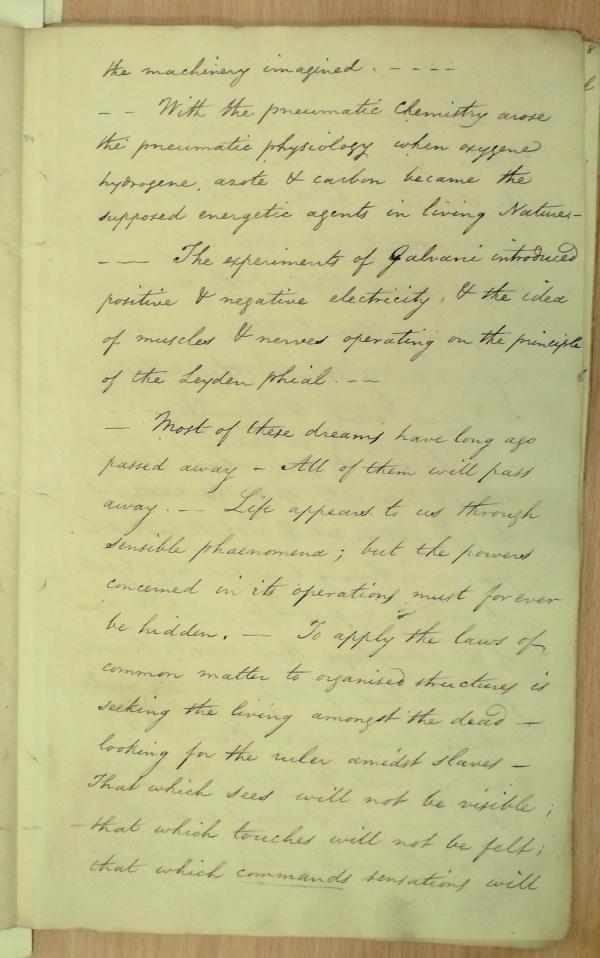 the machinery imagined. - - - -
- - With the pneumatic Chemistry arose
the pneumatic physiology when oxygene
hydrogene, azote & carbon became the
supposed energetic agents in living Natures -
- — The experiments of Galvani introduced
positive & negative electricity, & the idea
of muscles & nerves operating on the principle
of the Leyden phial. - —
— Most of these dreams have long ago
passed away - All of them will pass
away. - — Life appears to us through
sensible phaenomena; but the powers
concerned in its operations must for ever
be hidden. — To apply the laws of
common matter to organised structures is
seeking the living amongst the dead —
looking for the ruler amidst slaves —
That which sees will not be visible;
that which touches will not be felt;
that which commands sensations will